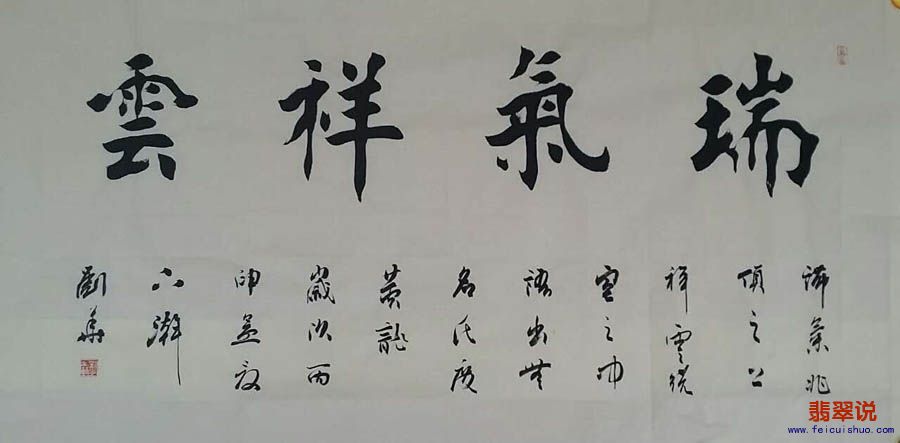 瑞氣祥雲
氣兆
頂之上
祥雲繞
室之中
語出無
名氏度
黄龍
歲次丙
申孟夏
六瀚
劉華
翡翠说
www.feicuishuo.com